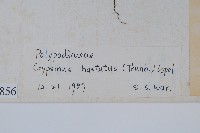 Polypodiaceae
Crypsinus hastatus (Thunb.) Copel
12 21 1987 S. S. Wur.
856